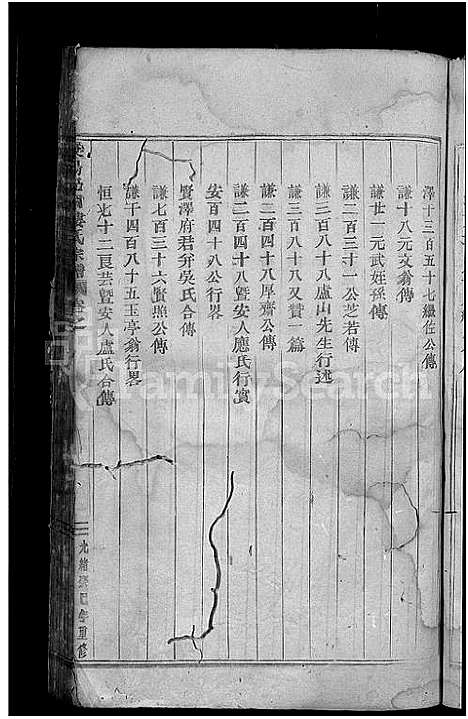 澤十三百五十七繼仕公傳
謙十八元文翁傳
謙廿一元武姪孫傳
謙二百三十一公芝若傳
謙二百八十八盧山先生行述
謙三百八十八又贊一篇
謙三百四十八厚齋公傳
謙二百四十八暨安人應氏行實
安百四十八公行畧
賢澤府君弁吳氏合傳
謙七百三十六賢照公傳
謙千四百八十五玉亭翁行畧
恒光十二良芸暨安人盧氏合傳
氏宗譜
光緒年重修
FamilySearch